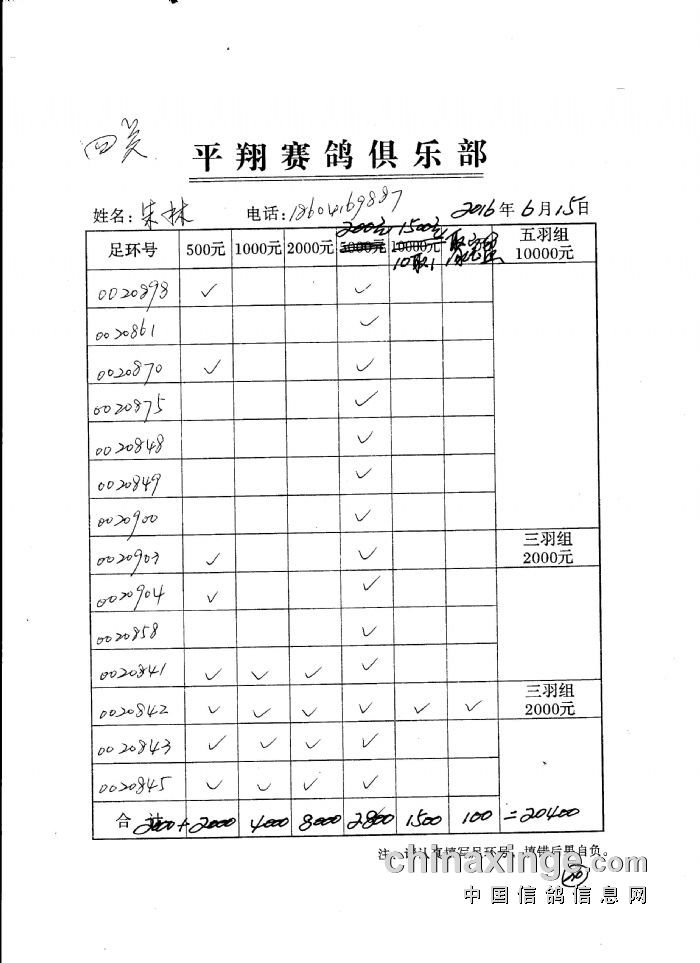 四关
平翔赛鸽俱乐部
姓名：朱林 电话：18604169887 2016年6月15日
200元 1500元
足环号 500元 1000元 2000元 5000元 10000元 五羽组 10000元
10取1
0020898 ✓ ✓
0020861 ✓
0020870 ✓ ✓
0020875 ✓
0020848 ✓
0020849 ✓
0020900 ✓
0020903 ✓ ✓ 三羽组 2000元
0020904 ✓ ✓
0020858 ✓
0020841 ✓ ✓ ✓ ✓
0020842 ✓ ✓ ✓ ✓ ✓ ✓ 三羽组 2000元
0020843 ✓ ✓ ✓ ✓
0020845 ✓ ✓ ✓ ✓
合计 2000+2000 4000 8000 2800 1500 100 =20400
注：请认真填写足环号，填错后果自负。
chinaxinge.com
中国信鸽信息网